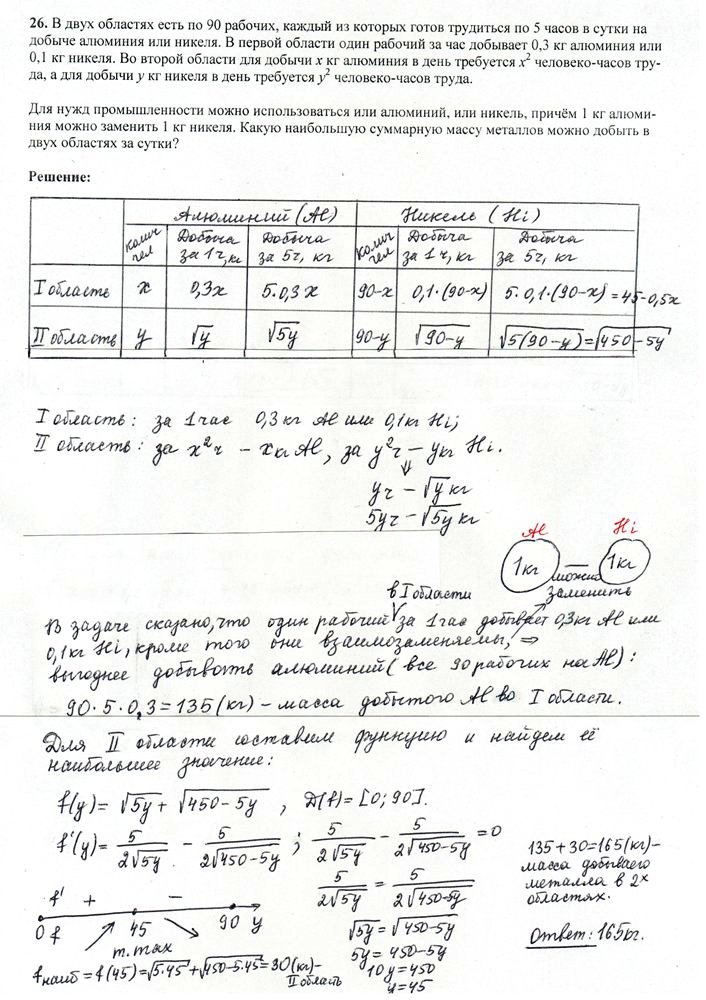 26. В двух областях есть по 90 рабочих, каждый из которых готов трудиться по 5 часов в сутки на
добыче алюминия или никеля. В первой области один рабочий за час добывает 0,3 кг алюминия или
0,1 кг никеля. Во второй области для добычи x кг алюминия в день требуется x² человеко-часов тру-
да, а для добычи y кг никеля в день требуется y² человеко-часов труда.
Для нужд промышленности можно использоваться или алюминий, или никель, причём 1 кг алюми-
ния можно заменить 1 кг никеля. Какую наибольшую суммарную массу металлов можно добыть в
двух областях за сутки?
Решение:
Алюминий (Al) Никель (Hi)
колич чел Добыча за 1ч, кг Добыча за 5ч, кг колич чел Добыча за 1ч, кг Добыча за 5ч, кг
I область x 0,3x 5·0,3x 90-x 0,1·(90-x) 5·0,1·(90-x) = 45-0,5x
II область y √y √5y 90-y √90-y √5(90-y) = √450-5y
I область: за 1 час 0,3 кг Al или 0,1 кг Hi;
II область: за x² ч - x кг Al, за y² ч - y кг Hi.
⇓
y ч - √y кг
5y ч - √5y кг
Al Hi
1 кг — 1 кг
можно
заменить
в I области
В задаче сказано, что один рабочий за 1 час добывает 0,3 кг Al или
0,1 кг Hi, кроме того они взаимозаменяемы, ⇒
выгоднее добывать алюминий (все 90 рабочих на Al):
90·5·0,3 = 135 (кг) - масса добытого Al во I области.
Для II области составим функцию и найдем её
наибольшее значение:
f(y) = √5y + √450-5y , D(f) = [0; 90].
f'(y) = 5/(2√5y) - 5/(2√450-5y) ; 5/(2√5y) - 5/(2√450-5y) = 0
5/(2√5y) = 5/(2√450-5y)
√5y = √450-5y
5y = 450-5y
10y = 450
y = 45
f' + -
0 45 90 y
f
т. max
f наиб = f(45) = √5·45 + √450-5·45 = 30 (кг) -
II область
135+30=165 (кг) -
масса добываемого
металла в 2х
областях.
Ответ: 165кг.